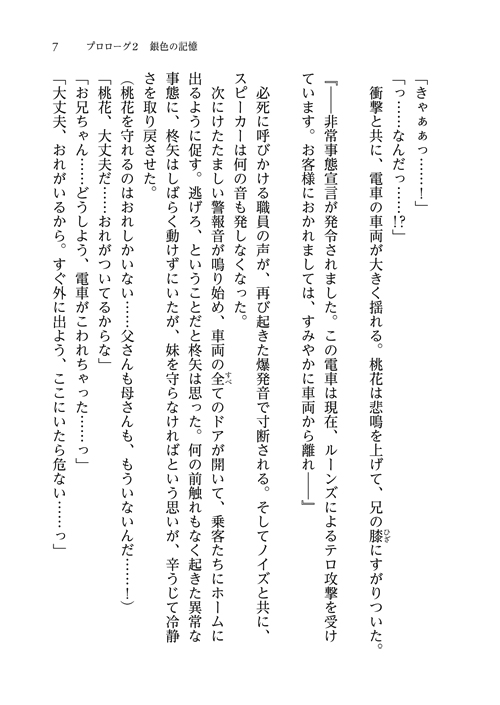 7　プロローグ2　銀色の記憶
「きゃぁぁっ……！」
「っ……なんだっ……!?」
衝撃と共に、電車の車両が大きく揺れる。桃花は悲鳴を上げて、兄の膝にすがりついた。
ひざ
『――非常事態宣言が発令されました。この電車は現在、ルーンズによるテロ攻撃を受け
ています。お客様におかれましては、すみやかに車両から離れ――』
必死に呼びかける職員の声が、再び起きた爆発音で寸断される。そしてノイズと共に、
スピーカーは何の音も発しなくなった。
次にけたたましい警報音が鳴り始め、車両の全てのドアが開いて、乗客たちにホームに
すべ
出るように促す。逃げろ、ということだと柊矢は思った。何の前触れもなく起きた異常な
事態に、柊矢はしばらく動けずにいたが、妹を守らなければという思いが、辛うじて冷静
さを取り戻させた。
（桃花を守れるのはおれしかいない……父さんも母さんも、もういないんだ……！）
「桃花、大丈夫だ……おれがついてるからな」
「お兄ちゃん……どうしよう、電車がこわれちゃった……っ」
「大丈夫、おれがいるから。すぐ外に出よう、ここにいたら危ない……っ」